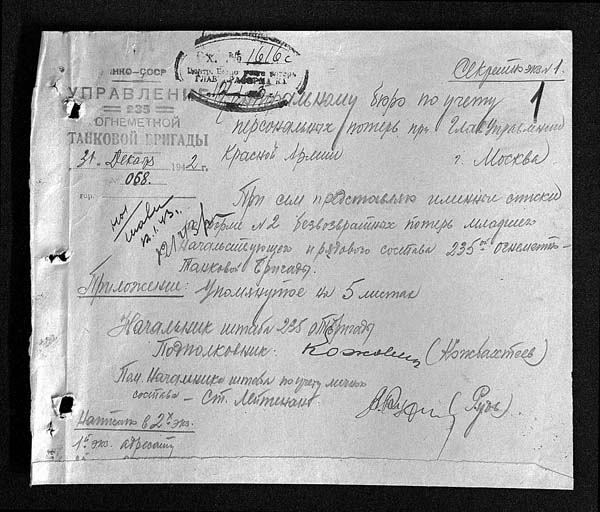 Вх. № 1616с
Секретно экз. № 1.
НКО-СССР
УПРАВЛЕНИЕ
235
ОГНЕМЕТНОЙ
ТАНКОВОЙ БРИГАДЫ
31 Декабр 1942 г.
№ 068.
гор.
1
Центральному бюро по учету
персональных потерь при Главуправлении
Красной Армии г. Москва
При сем представляю именной списки
форме № 2 безвозвратных потерь младшего
начальствующего и рядового состава 235ой огнеметно-
Танковой Бригады.
Приложение: Упомянутое на 5 листах
Начальник штаба 235 отбригады
Подполковник:
Пом. Начальника штаба по учету личного
состава – Ст. Лейтенант
Написано в 2х экз.
1й экз. адресату